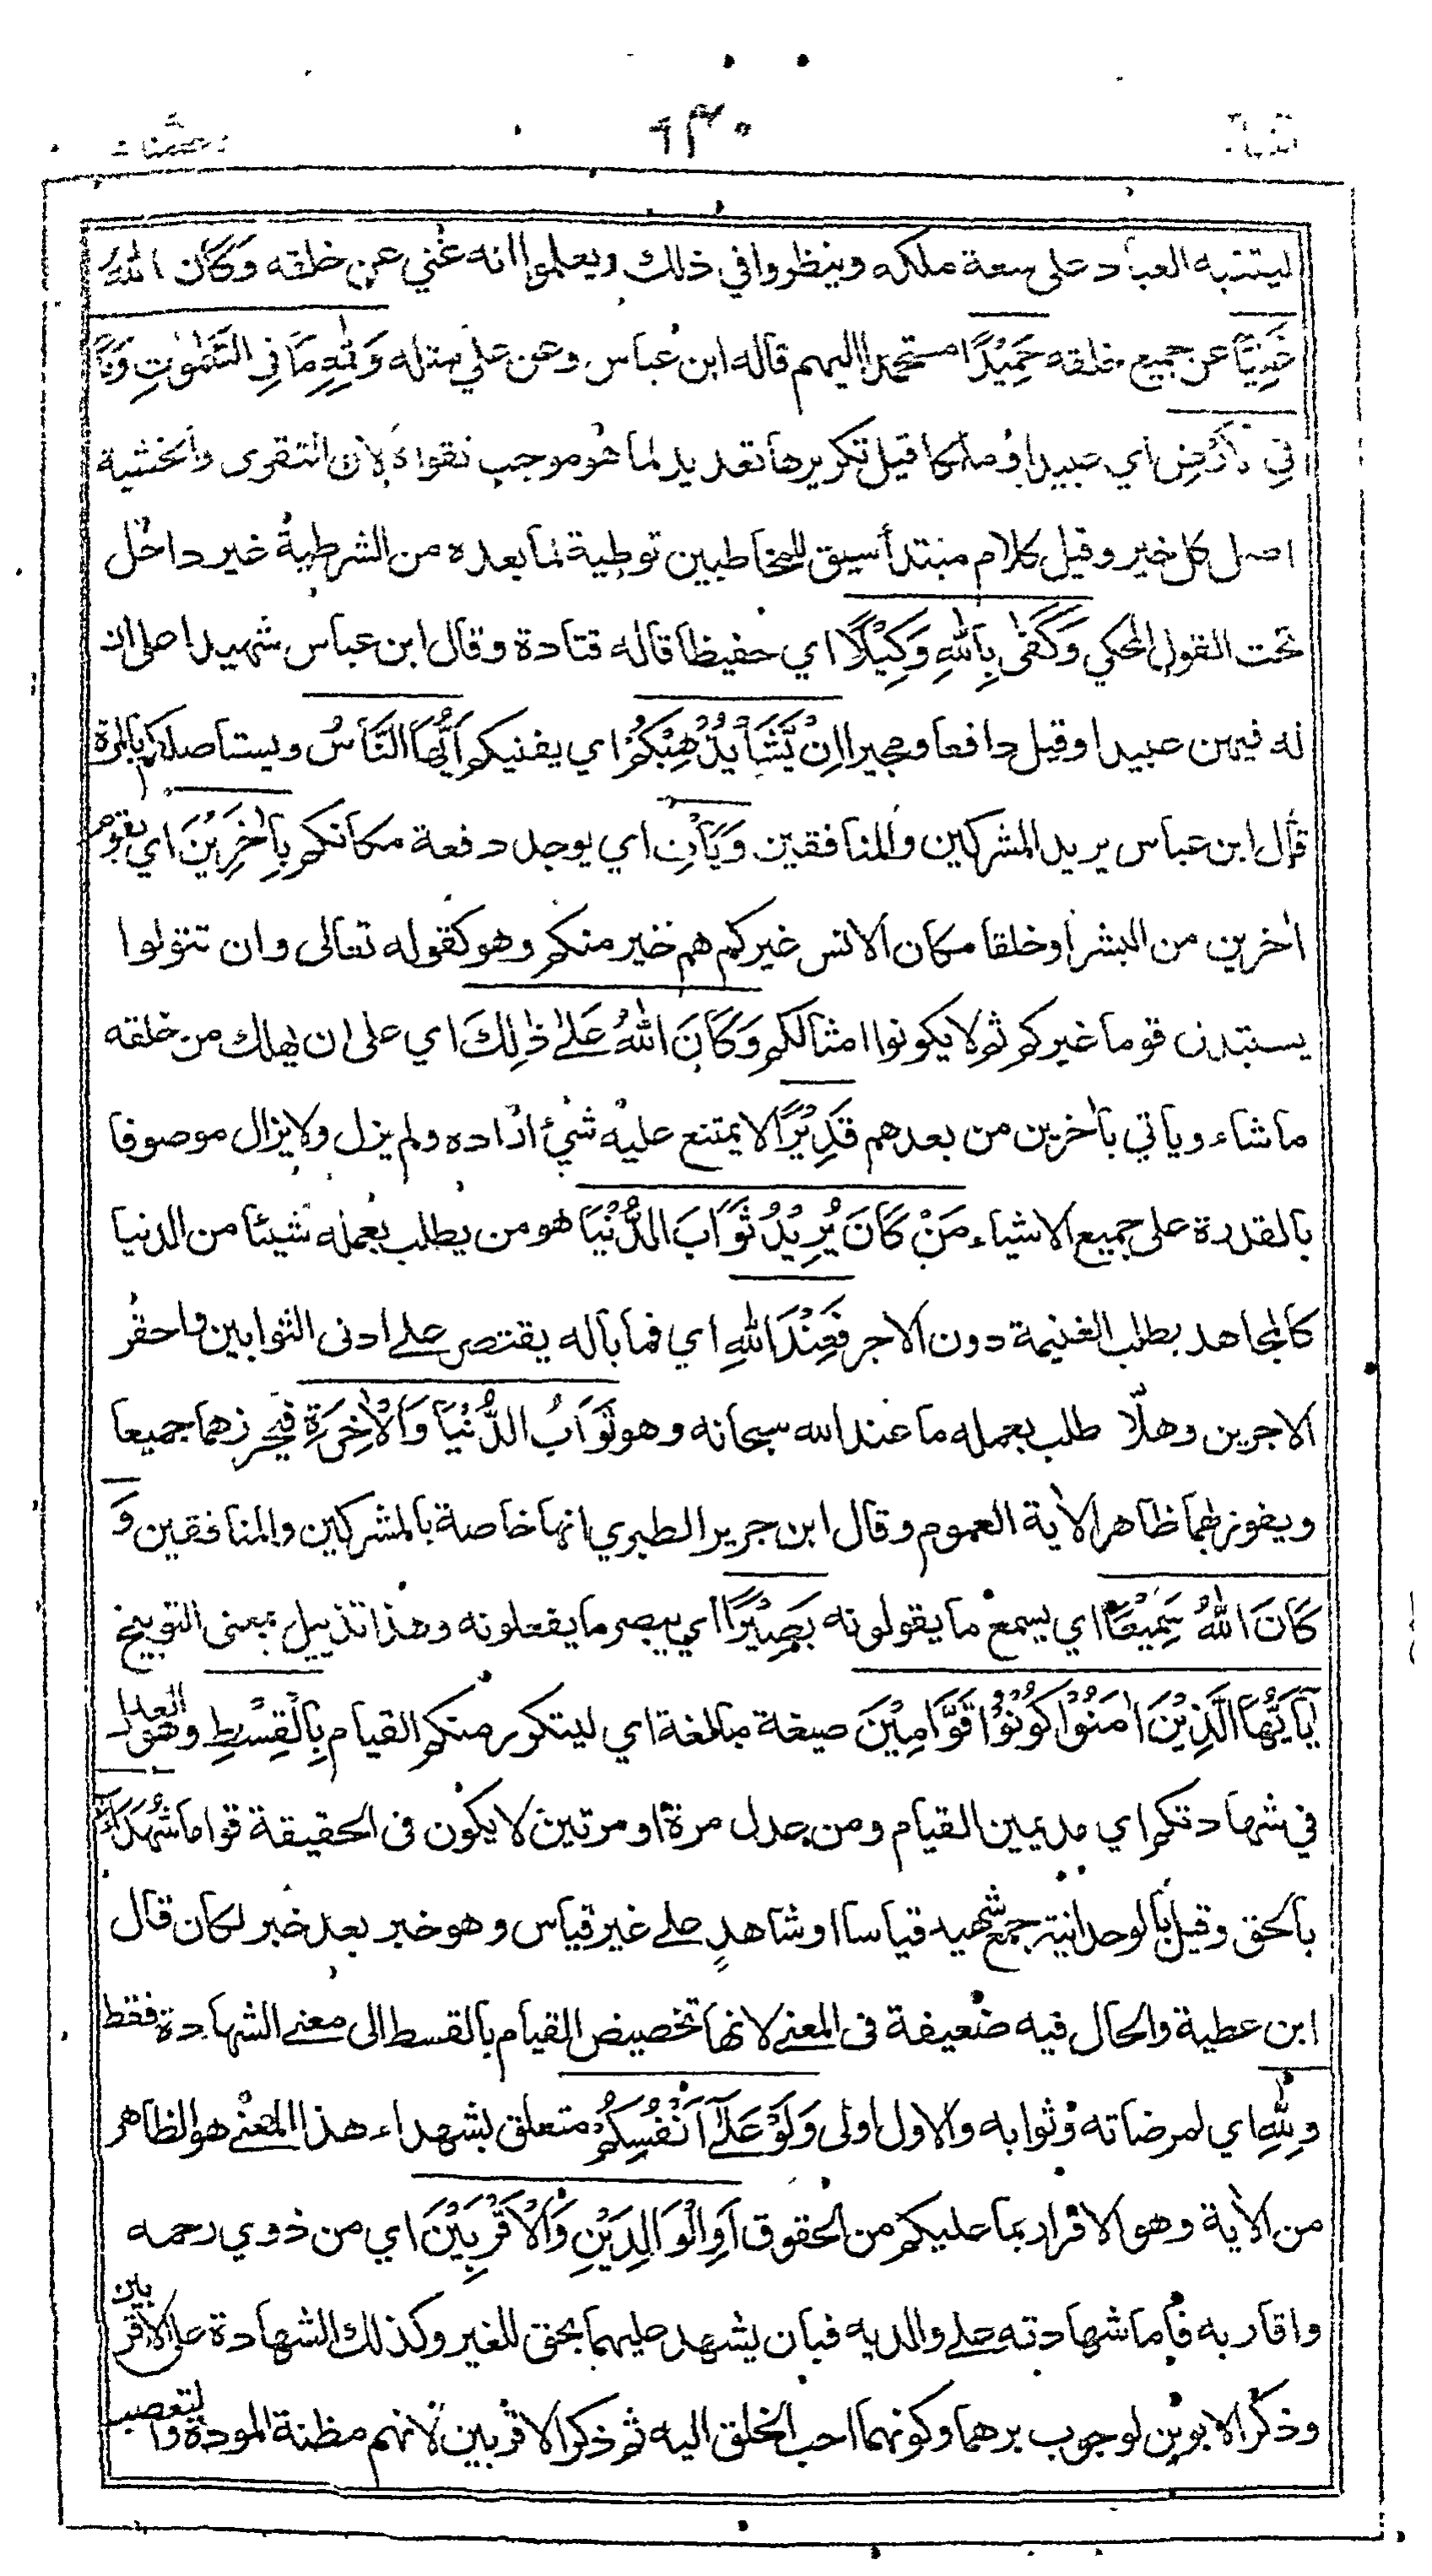 ٦٣٠
ليتنبه العباد على سعة ملكه وينظروا في ذلك ويعلموا انه غني عن خلقه وَكَانَ اللهُ
غَنِيًّا عن جميع خلقه حَمِيْدًا مستحمدا اليهم قاله ابن عباس وعن علي مثله وَلِلّٰهِ مَا فِي السَّمٰوٰتِ وَمَا
فِي الْأَرْضِ اي عبيدا وملكا قيل تكريرها تعديد لما هو موجب تقواه لان التقوى والخشية
اصل كل خير وقيل كلام مبتدأ سيق للمخاطبين توطية لما بعده من الشرطية غير داخل
تحت القول المحكي وَكَفٰى بِاللهِ وَكِيْلًا اي حفيظا قاله قتادة وقال ابن عباس شهيدا على ان
له فيهن عبيدا وقيل دافعا ومجيرا اِنْ يَّشَأْ يُذْهِبْكُمْ اي يفنيكم اَيُّهَا النَّاسُ ويستاصلكم بالمرة
قال ابن عباس يريد المشركين والمنافقين وَيَأْتِ اي يوجد دفعة مكانكم بِاٰخَرِيْنَ اي بقوم
اٰخرين من البشر او خلقا مكان الانس غيركم هم خير منكم وهو كقوله تعالى وان تتولوا
يستبدل قوما غيركم ثم لا يكونوا امثالكم وَكَانَ اللهُ عَلٰى ذٰلِكَ اي على ان يهلك من خلقه
ما شاء وياتي باٰخرين من بعدهم قَدِيْرًا لا يمتنع عليه شيء اراده ولم يزل ولا يزال موصوفا
بالقدرة على جميع الاشياء مَنْ كَانَ يُرِيْدُ ثَوَابَ الدُّنْيَا هو من يطلب بعمله شيئا من الدنيا
كالمجاهد يطلب الغنيمة دون الاجر فَعِنْدَ اللهِ اي فما باله يقتصر على ادنى الثوابين واحقر
الاجرين وهلّا طلب بعمله ما عند الله سبحانه وهو ثَوَابُ الدُّنْيَا وَالْاٰخِرَةِ فيحرزهما جميعا
ويفوز بهما ظاهر الاٰية العموم وقال ابن جرير الطبري انها خاصة بالمشركين والمنافقين وَ
كَانَ اللهُ سَمِيْعًا اي يسمع ما يقولونه بَصِيْرًا اي يبصر ما يفعلونه وهذا تذييل بمعنى التوبيخ
يٰٓاَيُّهَا الَّذِيْنَ اٰمَنُوْا كُوْنُوْا قَوَّامِيْنَ صيغة مبالغة اي ليتكرر منكم القيام بِالْقِسْطِ وهو العدل
في شهادتكم اي مديمين القيام ومن عدل مرة او مرتين لا يكون فى الحقيقة قواما شُهَدَآءَ
بالحق وقيل بالوحدانية جمع شهيد قياسا او شاهدٍ على غير قياس وهو خبر بعد خبر لكان قال
ابن عطية والحال فيه ضعيفة فى المعنى لانها تخصيص القيام بالقسط الى معنى الشهادة فقط
وِلِلّٰهِ اي لمرضاته وثوابه والاول اولى وَلَوْ عَلٰٓى اَنْفُسِكُمْ متعلق بشهداء هذا المعنى هو الظاهر
من الاٰية وهو الاقرار بما عليكم من الحقوق اَوِ الْوَالِدَيْنِ وَالْاَقْرَبِيْنَ اي من ذوي رحمه
واقاربه فأما شهادته على والديه فبان يشهد عليهما بحق للغير وكذلك الشهادة على الاقربين
وذكر الابوين لوجوب برهما وكونهما احب الخلق اليه ثم ذكر الاقربين لانهم مظنة المودة والتعصب